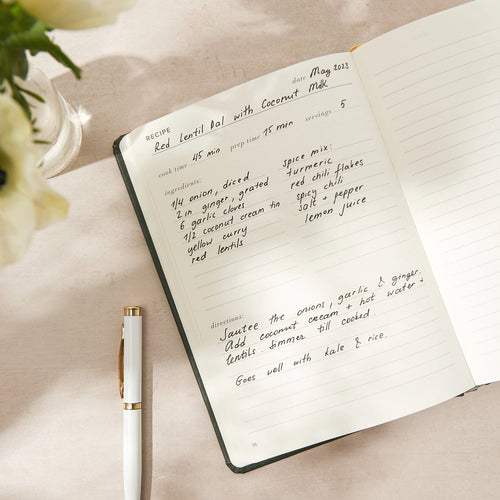 date May 2023
RECIPE Red Lentil Dal with Coconut Milk
cook time 45 min prep time 15 min servings 5
ingredients:
1/4 onion, diced
2 in ginger, grated
6 garlic cloves
1/2 coconut cream tin
yellow curry
red lentils
spice mix:
turmeric
red chili flakes
spicy chili
salt + pepper
lemon juice
directions:
Sautee the onions, garlic & ginger.
Add coconut cream + hot water +
lentils. Simmer till cooked.
Goes well with kale & rice.